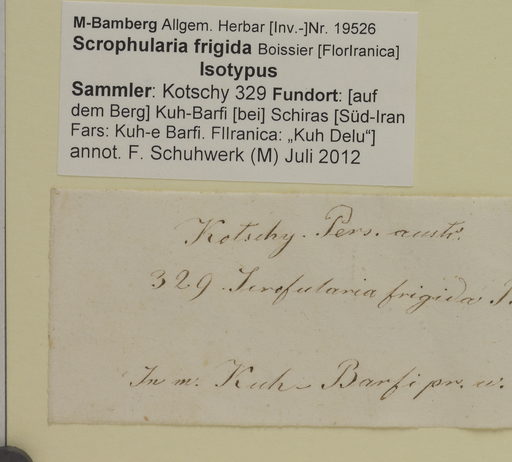 M-Bamberg Allgem. Herbar [Inv.-]Nr. 19526
Scrophularia frigida Boissier [FlorIranica]
Isotypus
Sammler: Kotschy 329 Fundort: [auf
dem Berg] Kuh-Barfi [bei] Schiras [Süd-Iran
Fars: Kuh-e Barfi. FlIranica: „Kuh Delu“]
annot. F. Schuhwerk (M) Juli 2012
Kotschy. Pers. austr.
329 Scrofularia frigida
In m. Kuh-Barfi pr. u.